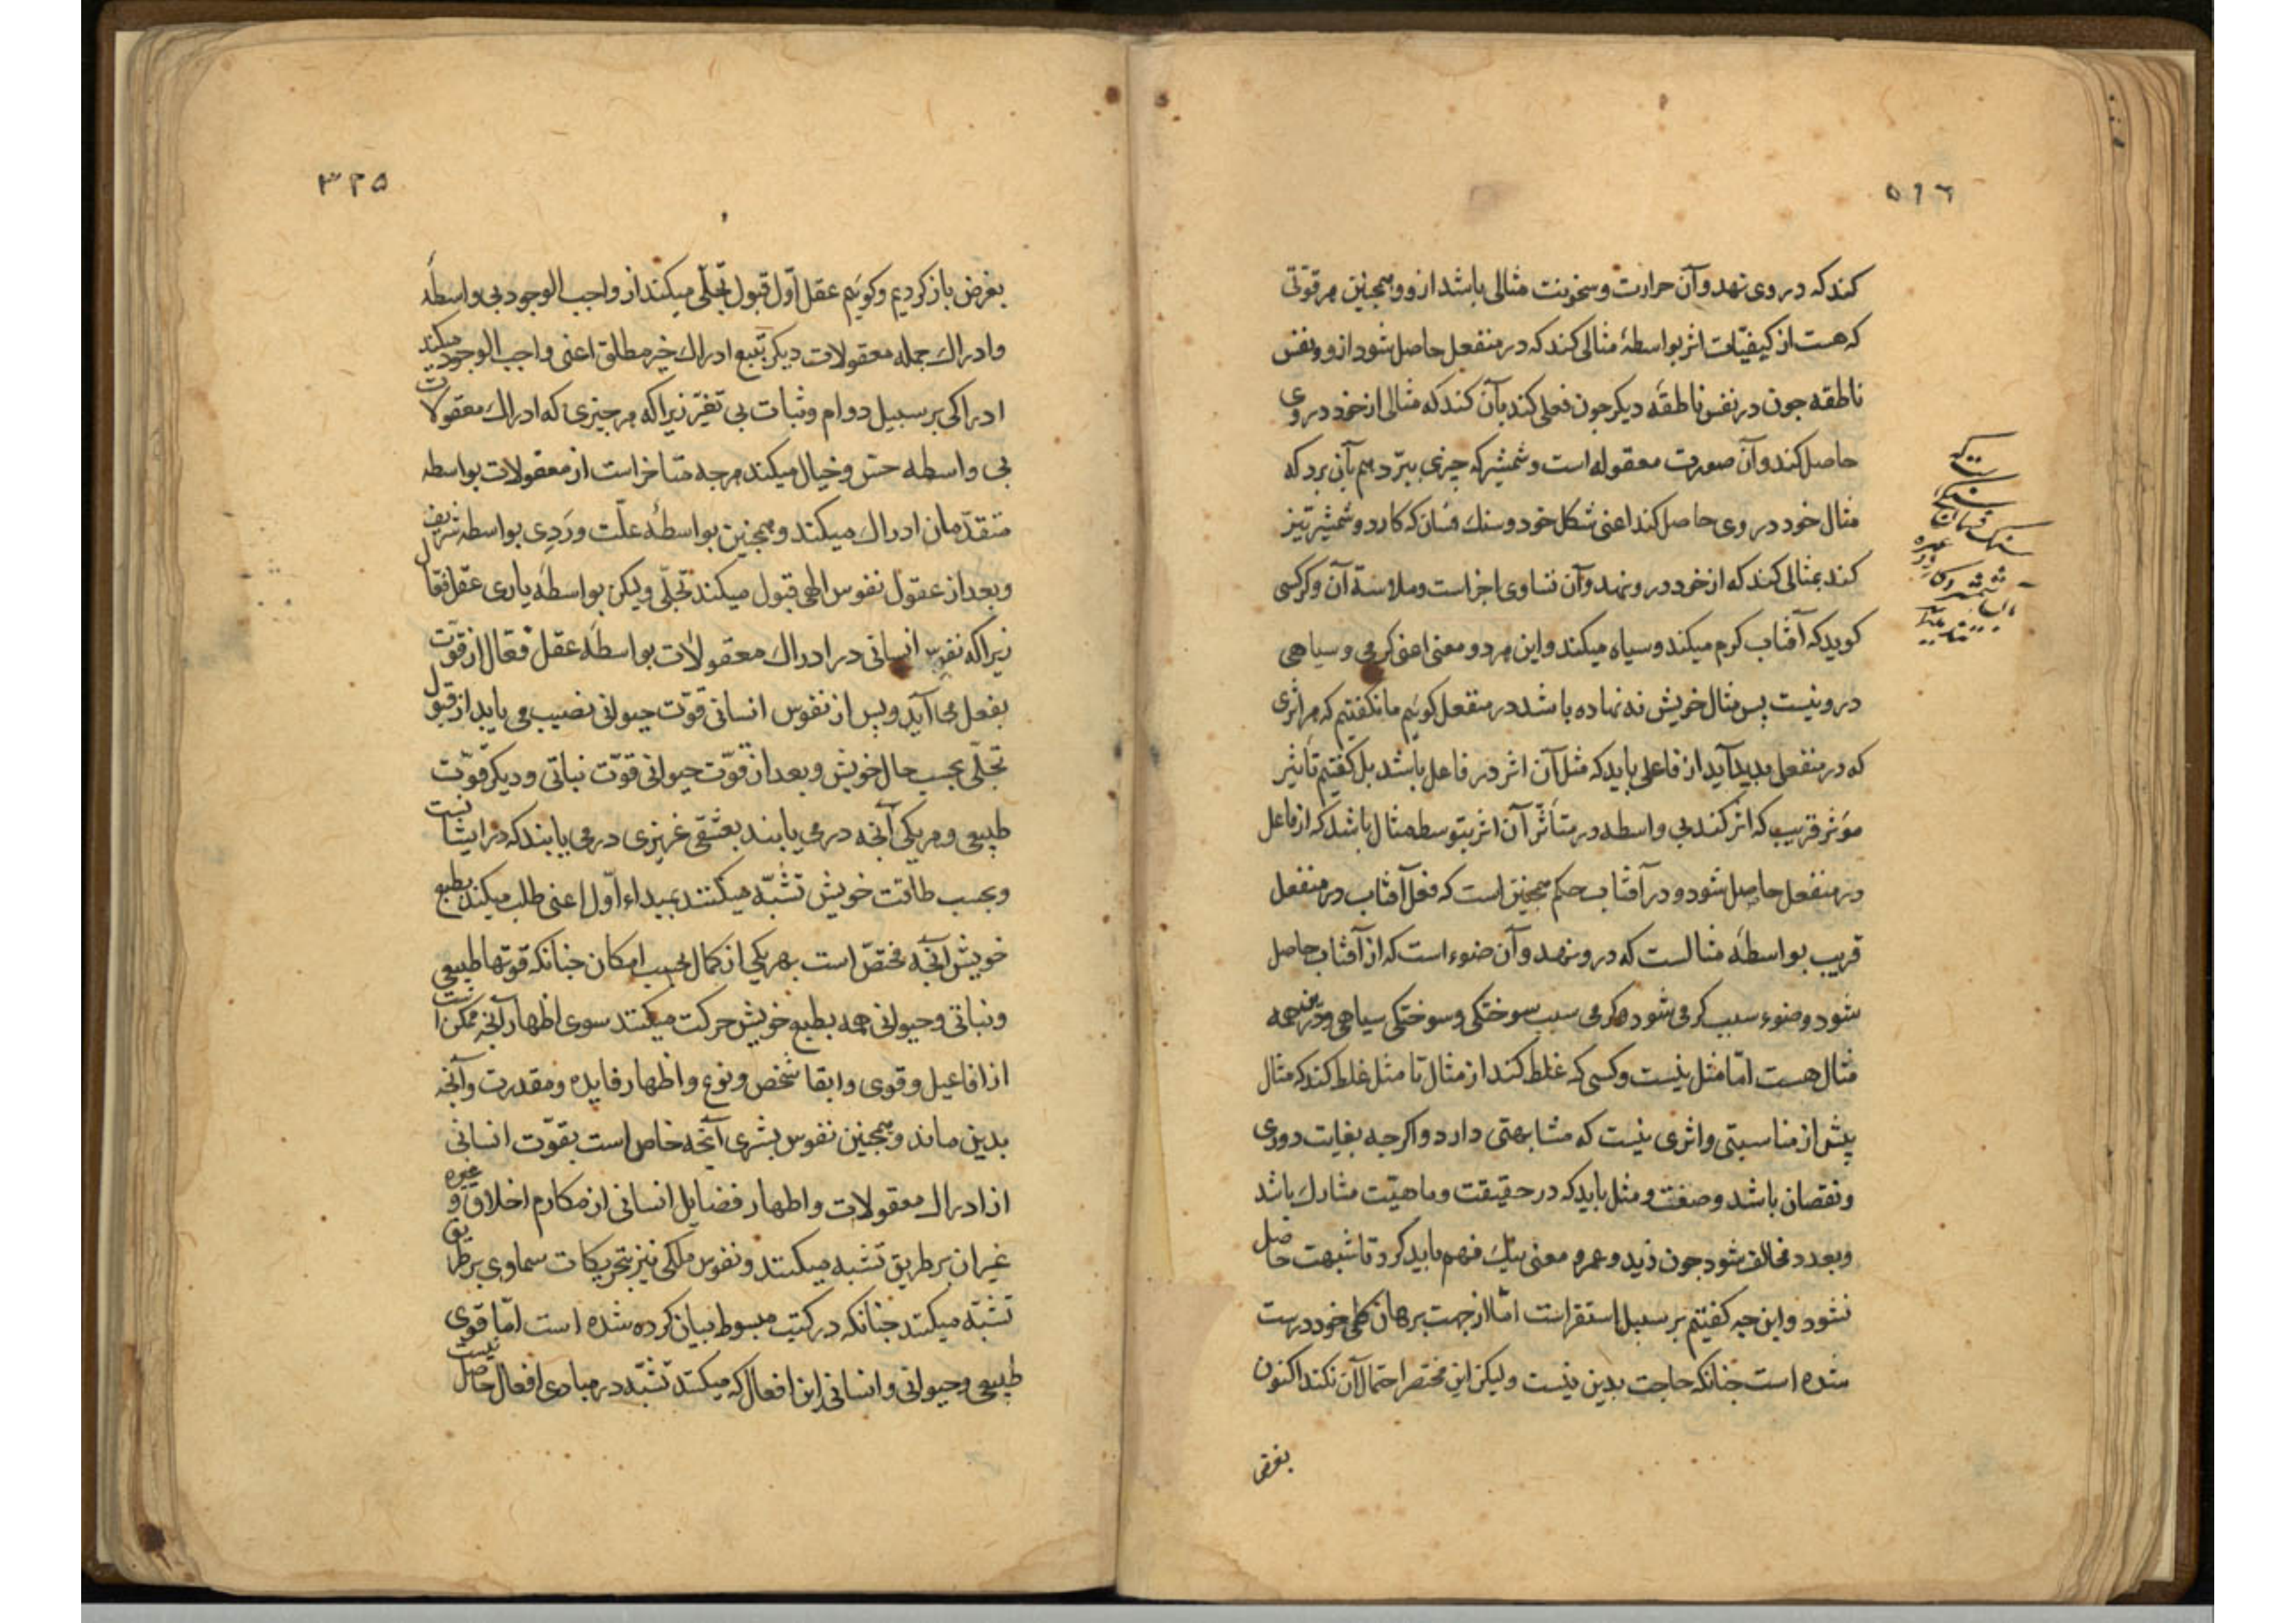 ۵۱۶
کند که در وی نهد و آن حرارت و سخونت مثالی باشد ازو و همچنین هر قوتی
که هست از کیفیّات اثر بواسطهٔ مثالی کند که در منفعل حاصل شود ازو و نفس
ناطقه جون در نفس ناطقهٔ دیکر جون فعلی کند بآن کند که مثالی از خود در وی
حاصل کند و آن صورت معقوله است و شمشیر که جیزی ببرّد هم بآن برد که
مثال خود در وی حاصل کند اعنی شکل خود و سنك فسان که کارد و شمشیر تیز
کند بمثالی کند که از خود درو نهد و آن تساوی اجزاست و ملاسة آن و کر کسی
کوید که آفتاب کرم میکند و سیاه میکند و این هر دو معنی اعنی کرمی و سیاهی
درو نیست بس مثال خویش نه نهاده باشد در منفعل کوئیم ما نکفتیم که هر اثری
که در منفعل بدید آید از فاعلی باید که مثل آن اثر در فاعل باشد بل کفتیم تأثیر
مؤثر قریب که اثر کند بی واسطه در متأثّر آن اثر بتوسط مثال باشد که از فاعل
در منفعل حاصل شود و در آفتاب حکم همجنین است که فعل آفتاب در منفعل
قریب بواسطهٔ مثالست که درو نهد و آن ضوء است که از آفتاب حاصل
شود و ضوء سبب کرمی شود و کرمی سبب سوختکی و سوختکی سیاهی و درین همه
مثال هست امّا مثل نیست و کسی که غلط کند از مثال تا مثل غلط کند که مثال
بیش از مناسبتی و اثری نیست که مشابهتی دارد و اکرجه بغایت دوری
و نقصان باشد و صفت و مثل باید که در حقیقت و ماهیّت مشارك باشد
و بعدد مخالف شود جون زید و عمرو معنی نیك فهم باید کرد تا شبهت حاصل
نشود و این جه کفتیم بر سبیل استقراست امّا از جهت برهان کلی خود درست
شده است جنانکه حاجت بدین نیست ولیکن این مختصر احتمال آن نکند اکنون
بغرض
۳۲۵
بغرض باز کردیم و کوئیم عقل اوّل قبول تجلّی میکند از واجب الوجود بی واسطهٔ
و ادراك جمله معقولات دیکر بتبع ادراك خیر مطلق اعنی واجب الوجود میکند
ادراکی بر سبیل دوام و ثبات بی تغیّر زیرا که هر جیزی که ادراك معقولات
بی واسطه حسّ و خیال میکند هرجه متاخر است از معقولات بواسطه
متقدّمان ادراك میکند و همجنین بواسطهٔ علّت و رَدِی بواسطه شریف
و بعد از عقول نفوس الهی قبول میکند تجلّی ولیکن بواسطهٔ یاری عقل فعّال
زیرا که نفوس انسانی در ادراك معقولات بواسطهٔ عقل فعّال از قوّت
بفعل می آید و بس از نفوس انسانی قوّت حیوانی نصیب می یابد از قبول
تجلّی بحسب حال خویش و بعد از قوّت حیوانی قوّت نباتی و دیکر قوّت
طبیعی و هر یکی آنجه در می یابند بعشقی غریزی در می یابند که در ایشانست
و بحسب طاقت خویش تشبّه میکنند بمبداء اوّل اعنی طلب میکند بطبع
خویش آنجه مختصّ است بهر یکی از کمال بحسب امکان جنانکه قوتها طبیعی
و نباتی و حیوانی همه بطبع خویش حرکت میکنند سوی اظهار آنجه ممکن است
از افاعیل و قوی و ابقا شخص و نوع و اظهار فایده و مقدرت و آنجه
بدین ماند و همجنین نفوس بشری آنجه خاص است بقوّت انسانی
از ادراك معقولات و اظهار فضایل انسانی از مکارم اخلاق و غیره
غیر ان بر طریق تشبه میکنند و نفوس ملکی نیز بتحریکات سماوی بر طریق
تشبّه میکنند جنانکه در کتب مبسوط بیان کرده شده است امّا قوی
طبیعی و حیوانی و انسانی این افعال که میکنند تشبّه در مبادی افعال حاصل نیست